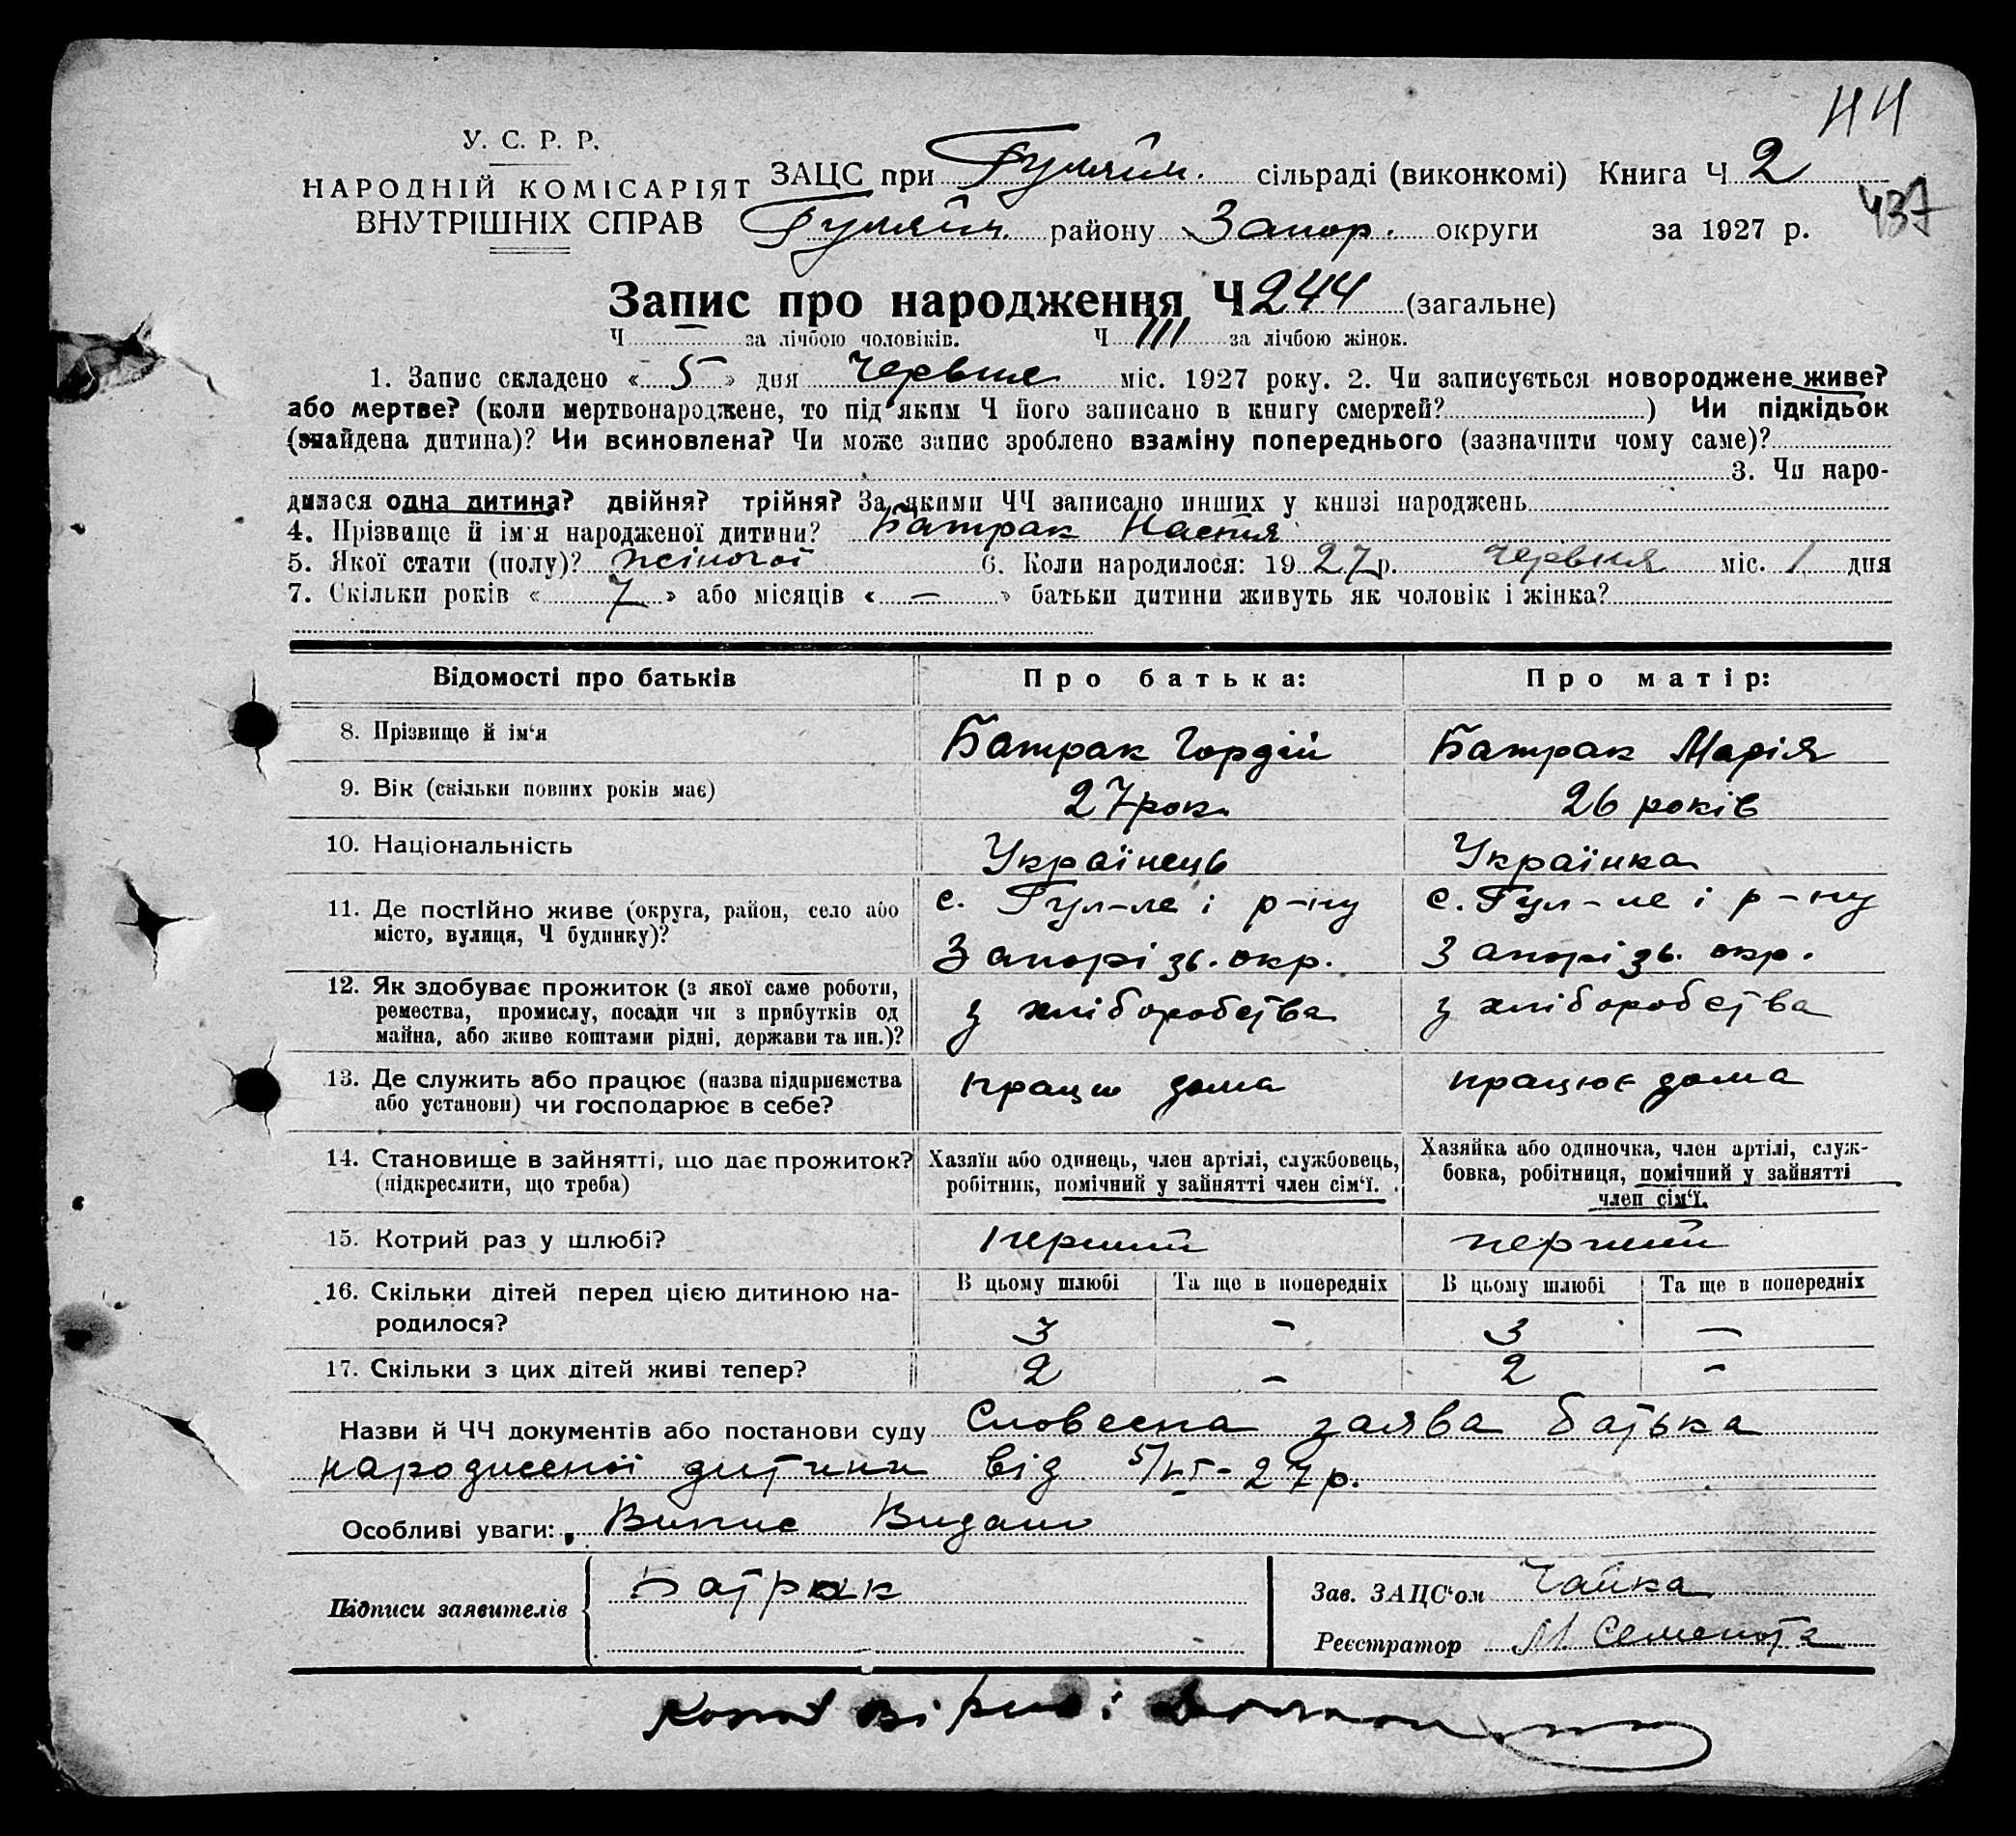 44
У. С. Р. Р.
НАРОДНІЙ КОМІСАРІЯТ
ВНУТРІШНІХ СПРАВ
ЗАЦС при Гуляйп. сільраді (виконкомі) Книга Ч 2
437
Гуляйп. району Запор. округи за 1927 р.
Запис про народження Ч 244 (загальне)
Ч — за лічбою чоловіків. Ч 111 за лічбою жінок.
1. Запис складено « 5 » дня Червня міс. 1927 року. 2. Чи записується новороджене живе?
або мертве? (коли мертвонароджене, то під яким Ч його записано в книгу смертей? ) Чи підкідьок
(знайдена дитина)? Чи всиновлена? Чи може запис зроблено взаміну попереднього (зазначити чому саме)?
3. Чи наро-
дилася одна дитина? двійня? трійня? За якими ЧЧ записано инших у книзі народжень
4. Прізвище й ім'я народженої дитини? Батрак Настя
5. Якої стати (полу)? жіночої 6. Коли народилося: 1927 р. червня міс. 1 дня
7. Скільки років « 7 » або місяців « — » батьки дитини живуть як чоловік і жінка?
Відомості про батьків Про батька: Про матір:
8. Прізвище й ім'я Батрак Гордій Батрак Марія
9. Вік (скільки повних років має) 27 рок. 26 років
10. Національність Українець Українка
11. Де постійно живе (округа, район, село або с. Гул-ле і р-ну с. Гул-ле і р-ну
місто, вулиця, Ч будинку)? Запорізь. окр. Запорізь. окр.
12. Як здобуває прожиток (з якої саме роботи,
ремества, промислу, посади чи з прибутків од з хліборобства з хліборобства
майна, або живе коштами рідні, держави та ин.)?
13. Де служить або працює (назва підприємства працю дома працює дома
або установи) чи господарює в себе?
14. Становище в зайнятті, що дає прожиток? Хазяїн або одинець, член артілі, службовець, Хазяйка або одиночка, член артілі, служ-
(підкреслити, що треба) робітник, помічний у зайнятті член сім'ї. бовка, робітниця, помічний у зайнятті
член сім'ї.
15. Котрий раз у шлюбі? перший перший
16. Скільки дітей перед цією дитиною на- В цьому шлюбі Та ще в попередніх В цьому шлюбі Та ще в попередніх
родилося? 3 — 3 —
17. Скільки з цих дітей живі тепер? 2 — 2 —
Назви й ЧЧ документів або постанови суду Словесна заява батька
народженої дитини від 5/VI-27 р.
Особливі уваги: Випис Видано
Підписи заявителів Батрак Зав. ЗАЦС'ом Чайка
Реєстратор М. Семенюта